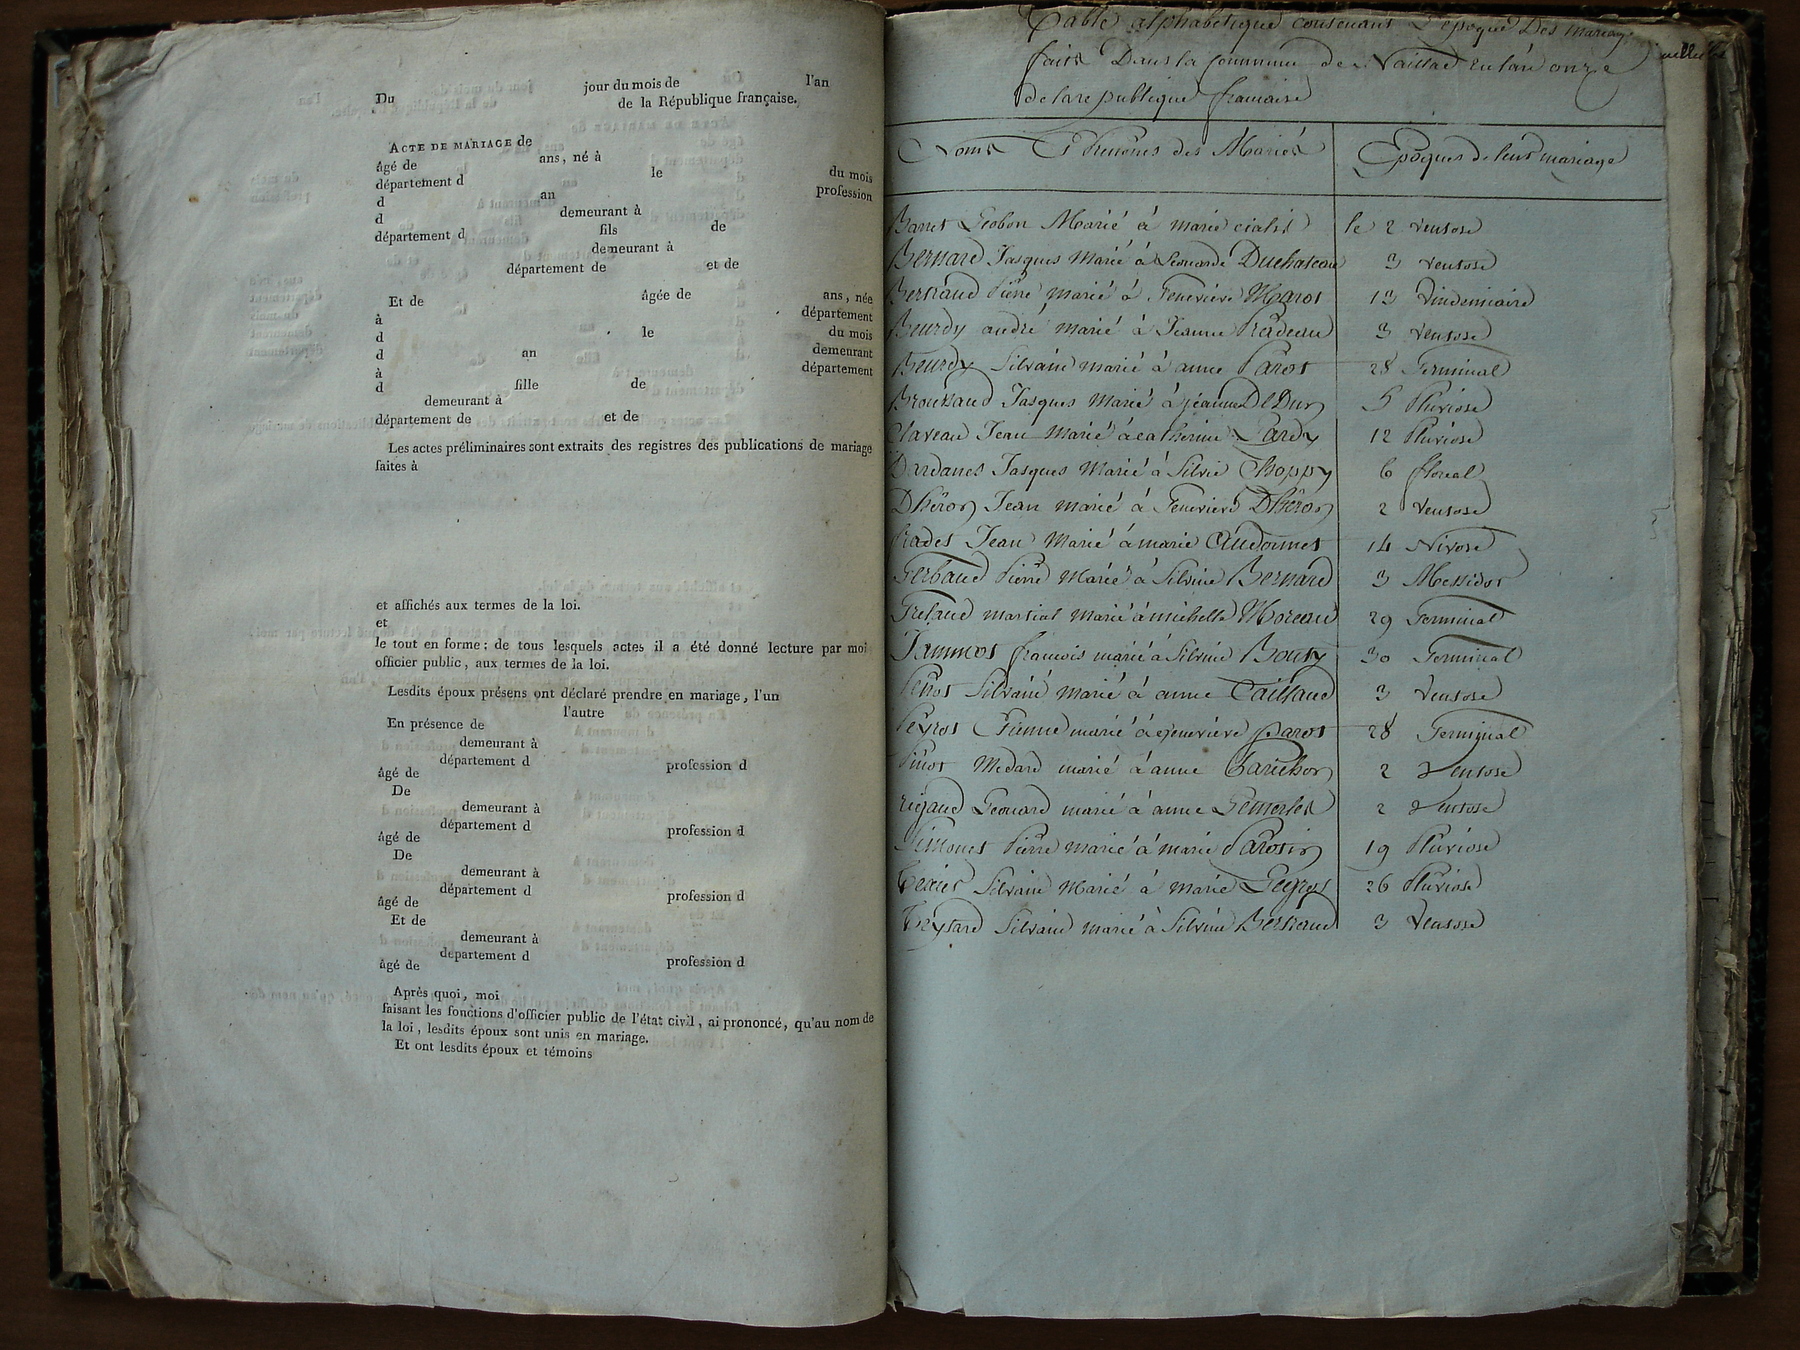 Du jour du mois de l'an
de la République française.
ACTE DE MARIAGE de
âgé de ans, né à
département d le du mois
d an profession
d demeurant à
département d fils de
demeurant à
département de et de
Et de âgée de ans, née
à département
d le du mois
d an demeurant
à département
d fille de
demeurant à
département de et de
Les actes préliminaires sont extraits des registres des publications de mariage
faites à
et affichés aux termes de la loi.
et
le tout en forme : de tous lesquels actes il a été donné lecture par moi
officier public, aux termes de la loi.
Lesdits époux présens ont déclaré prendre en mariage, l'un
l'autre
En présence de
demeurant à
département d profession d
âgé de
De
demeurant à
département d profession d
âgé de
De
demeurant à
département d profession d
âgé de
Et de
demeurant à
département d profession d
âgé de
Après quoi, moi
faisant les fonctions d'officier public de l'état civil, ai prononcé, qu'au nom de
la loi, lesdits époux sont unis en mariage.
Et ont lesdits époux et témoins
Table alphabetique contenant L'epoque Des mariages
faits Dans la Commune de Naillat en l'an onze
de la republique francaise
Noms Et Prenoms des Mariés Epoques de leur mariage
Barret Leobon Marié à marie le 2 Ventose
Bernard Jasques Marié à Leonarde Duchateau 3 ventose
Bertrand Pierre marié à Genevieve Marot 13 Vindemiaire
Beurdy andré marié à Jeanne Pradeau 3 Ventose
Beurdy Silvain marié à anne Parot 28 Germinal
Broussaud Jasques Marié à jeanne DeDun 5 Pluviose
Claveau Jean Marié à catherine Lardy 12 Pluviose
Dardanes Jasques Marié à Silvie Choppy 6 floreal
Dhéron Jean marié à Genevieve Dhéron 2 Ventose
frades Jean Marié à marie Audonnet 14 Nivose
Gerbaud Pierre Marié à Silvine Bernard 3 Messidor
Grelaud martial Marié à michelle Moreau 29 Germinal
Jammot francois marié à Silvine Bouty 30 Germinal
Silvain marié à anne Taillaud 3 Ventose
Peyrot Etienne marié à genevieve parot 28 Germinal
Pinot Medard marié à anne Barichon 2 Ventose
rigaud Leonard marié à anne 2 Ventose
Simonet Pierre marié à marie Parotin 19 Pluviose
Texier Silvain Marié à marie Peyrot 26 Pluviose
Teytard Silvain marié à Silvine Bertrand 3 Ventose